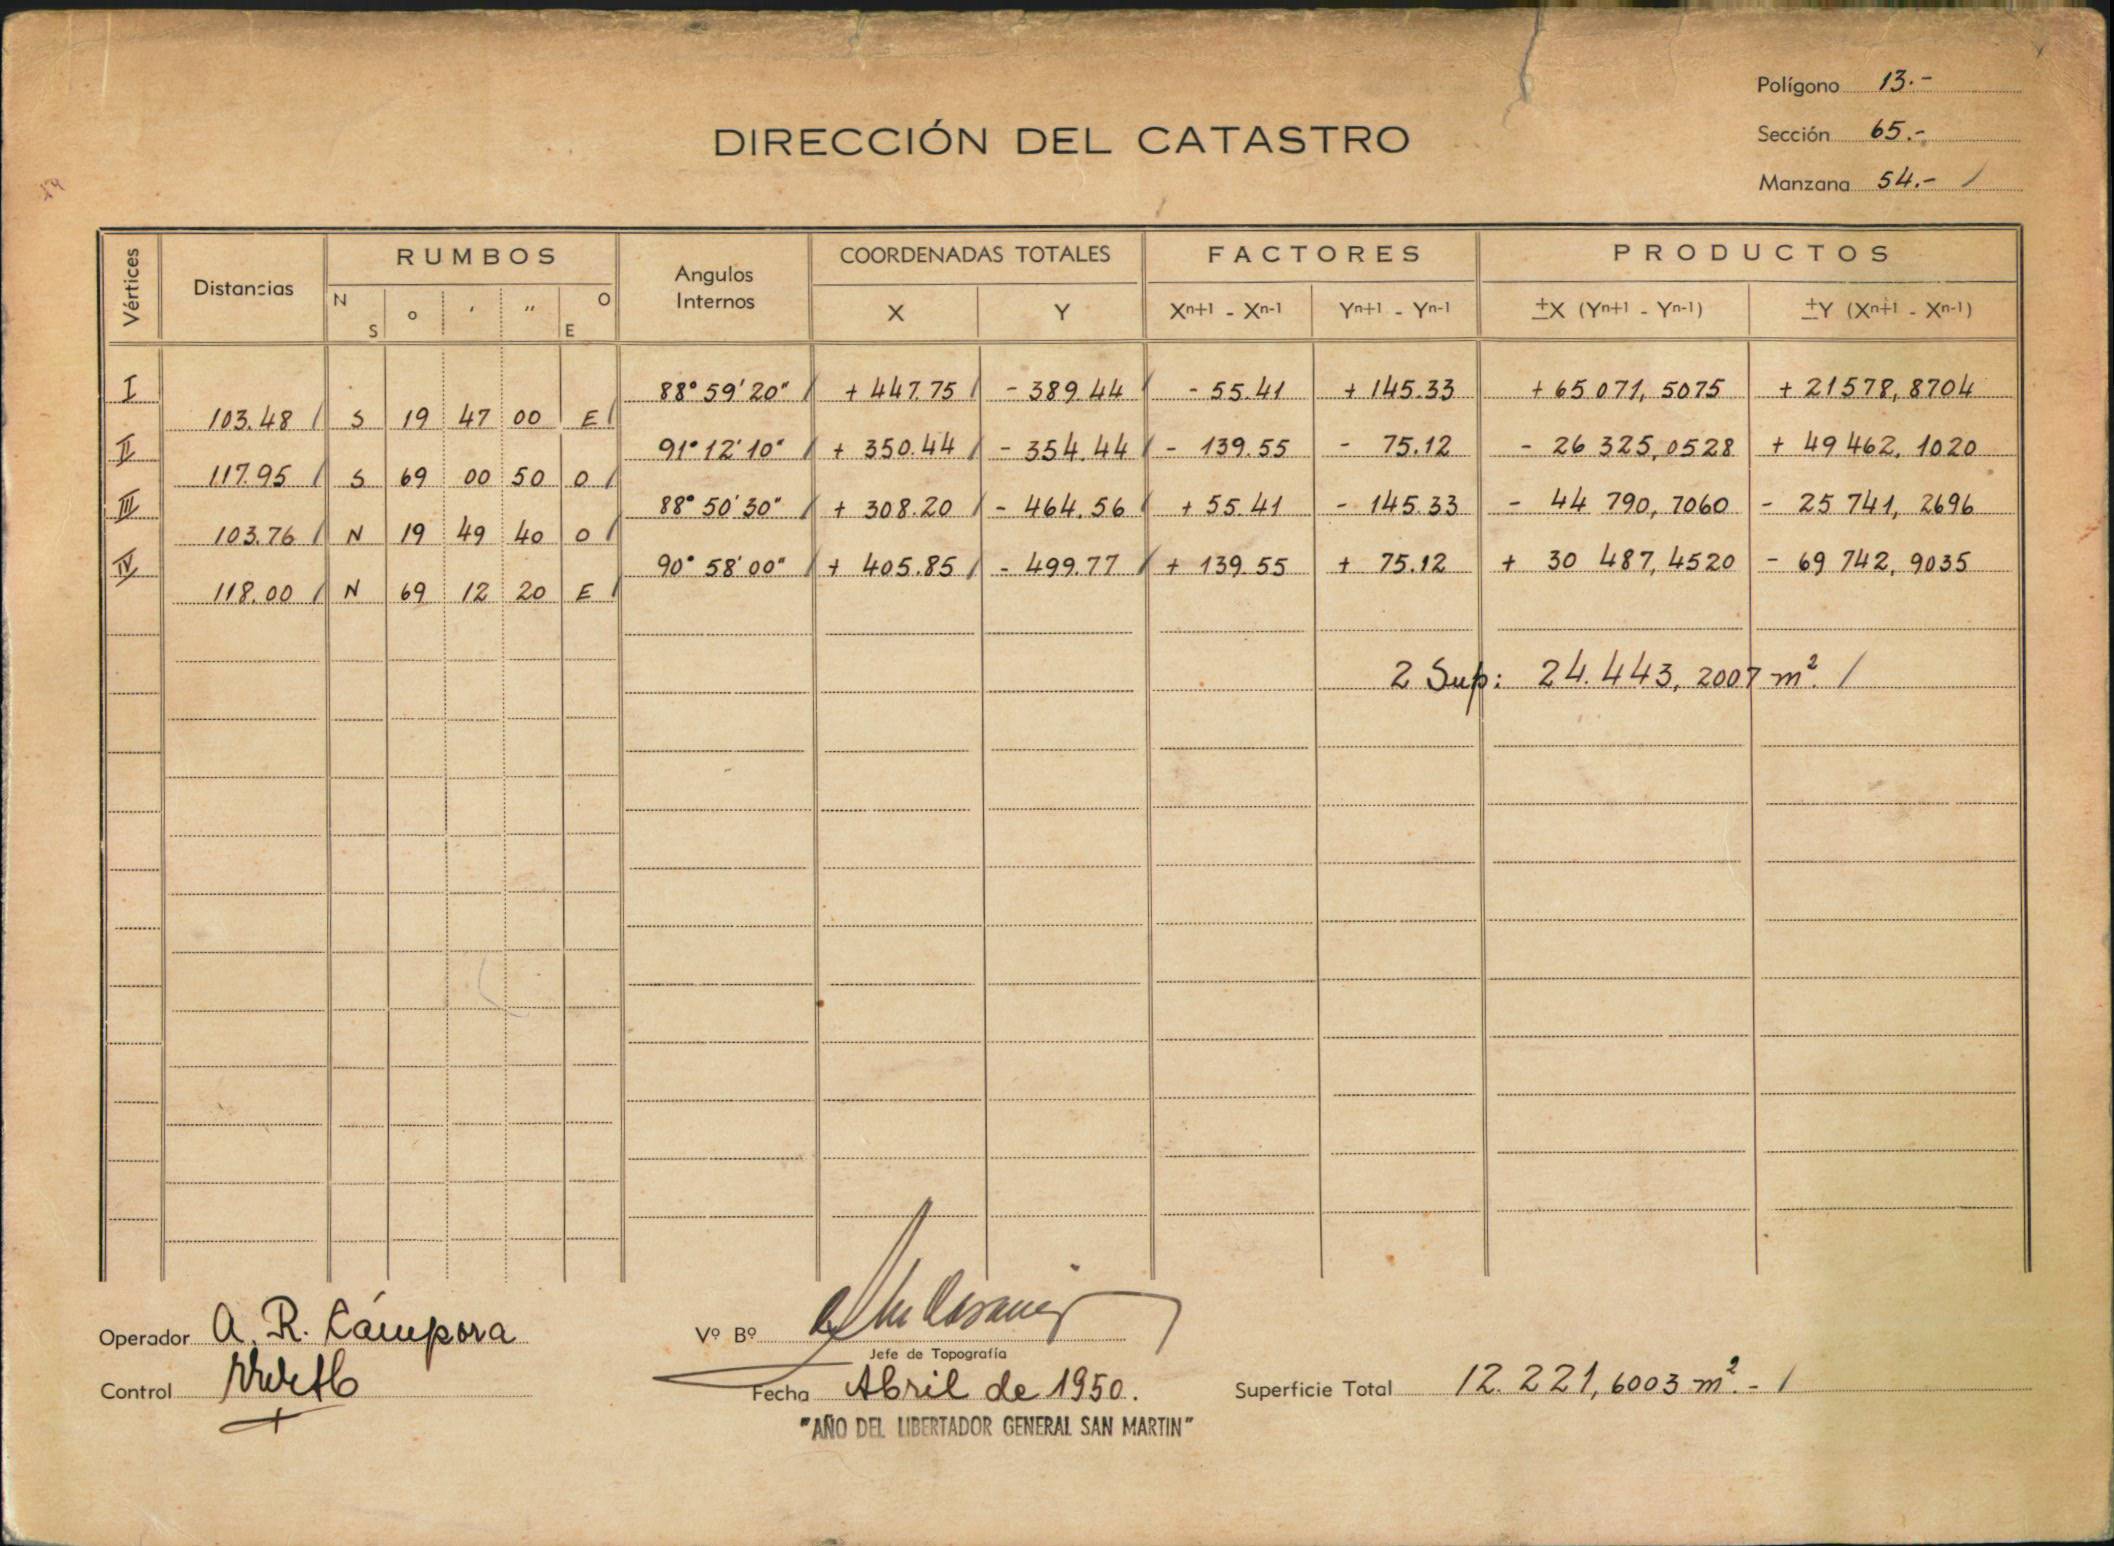 Polígono 13.-
DIRECCIÓN DEL CATASTRO
Sección 65.-
Manzana 54.- /
Vértices Distancias RUMBOS Angulos Internos COORDENADAS TOTALES FACTORES PRODUCTOS
N S o ' " O E X Y Xn+1 - Xn-1 Yn+1 - Yn-1 ±X (Yn+1 - Yn-1) ±Y (Xn+1 - Xn-1)
I 88° 59' 20" / + 447.75 / - 389.44 / - 55.41 + 145.33 + 65 071, 5075 + 21578, 8704
103.48 / S 19 47 00 E /
II 91° 12' 10" / + 350.44 / - 354.44 / - 139.55 - 75.12 - 26 325,0528 + 49 462, 1020
117.95 / S 69 00 50 O /
III 88° 50' 30" / + 308.20 / - 464.56 / + 55.41 - 145.33 - 44 790, 7060 - 25 741, 2696
103.76 / N 19 49 40 O /
IV 90° 58' 00" / + 405.85 / - 499.77 / + 139.55 + 75.12 + 30 487, 4520 - 69 742, 9035
118.00 / N 69 12 20 E /
2 Sup: 24.443, 2007 m². /
Operador A. R. Cámpora Vº Bº
Jefe de Topografía
Control Fecha Abril de 1950. Superficie Total 12.221, 6003 m².- /
"AÑO DEL LIBERTADOR GENERAL SAN MARTIN"